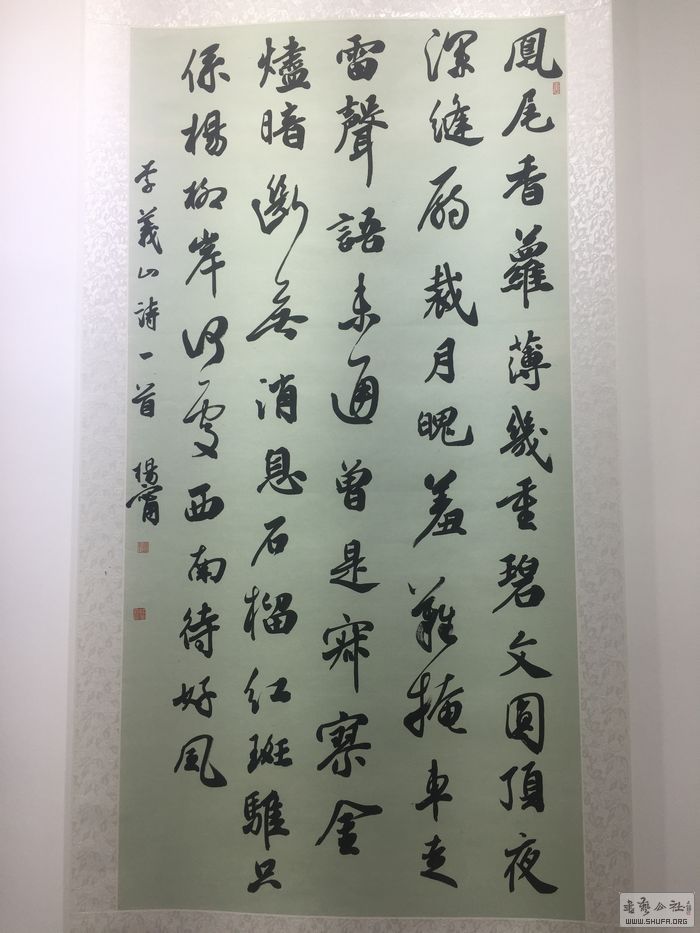 鳳尾香蘿薄幾重碧文圓頂夜
深縫扇裁月魄羞難掩車走
雷聲語未通曾是寂寥金
燼暗斷無消息石榴紅斑騅只
係楊柳岸何處西南待好風
李義山詩一首 楊
書藝公社
WWW.SHUFA.ORG